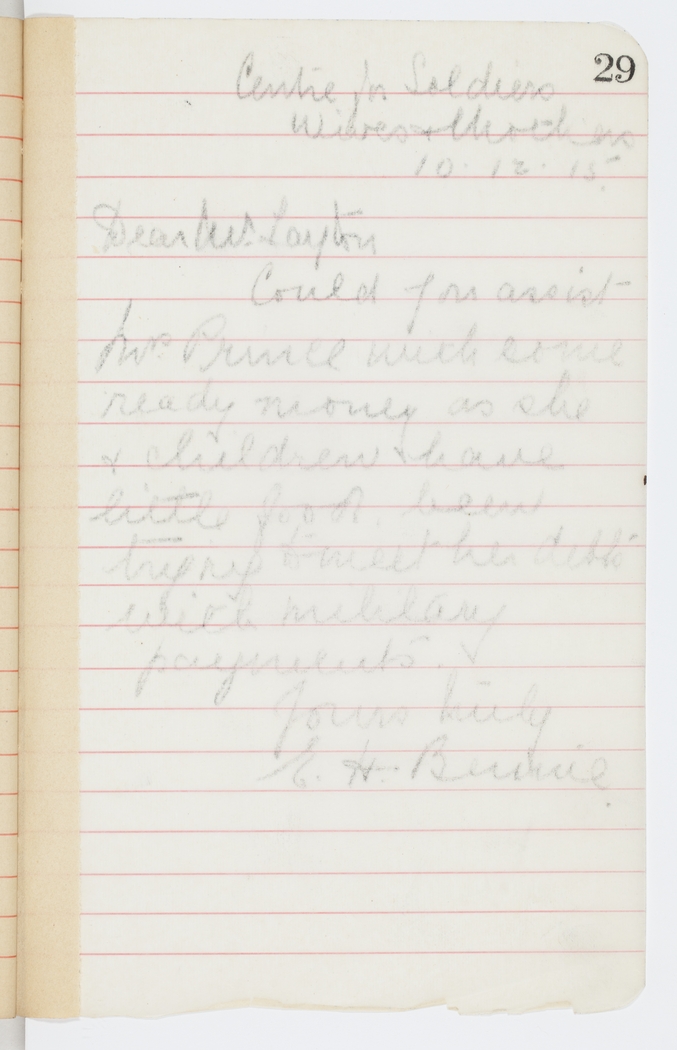 29
Centre for Soldiers
Wives & Mothers
10. 12. 15.
Dear Mr. Layton
Could you assist
Mrs Prince with some
ready money as she
& children have
little food, been
trying to meet her debts
with military
payments.
Yours truly
E. H. Bennie